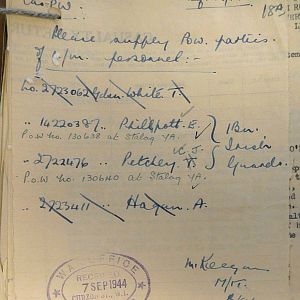 Cas. P.W.
18A
Please supply P.o.w. parties.
of o/m. personnel :-
No. 2723062 Gdsn. White. T.
" 14220387. .. Phillpott. E.
P.o.W no. 130638 at Stalag 4A.
1 Bn.
Irish
Guards.
" 2722476 .. Petchey.
P.o.w. no. 130640 at Stalag 4A.
" 2723411 .. Hagan. A.
McKeegan
WAR OFFICE
RECEIVED
7 SEP 1944